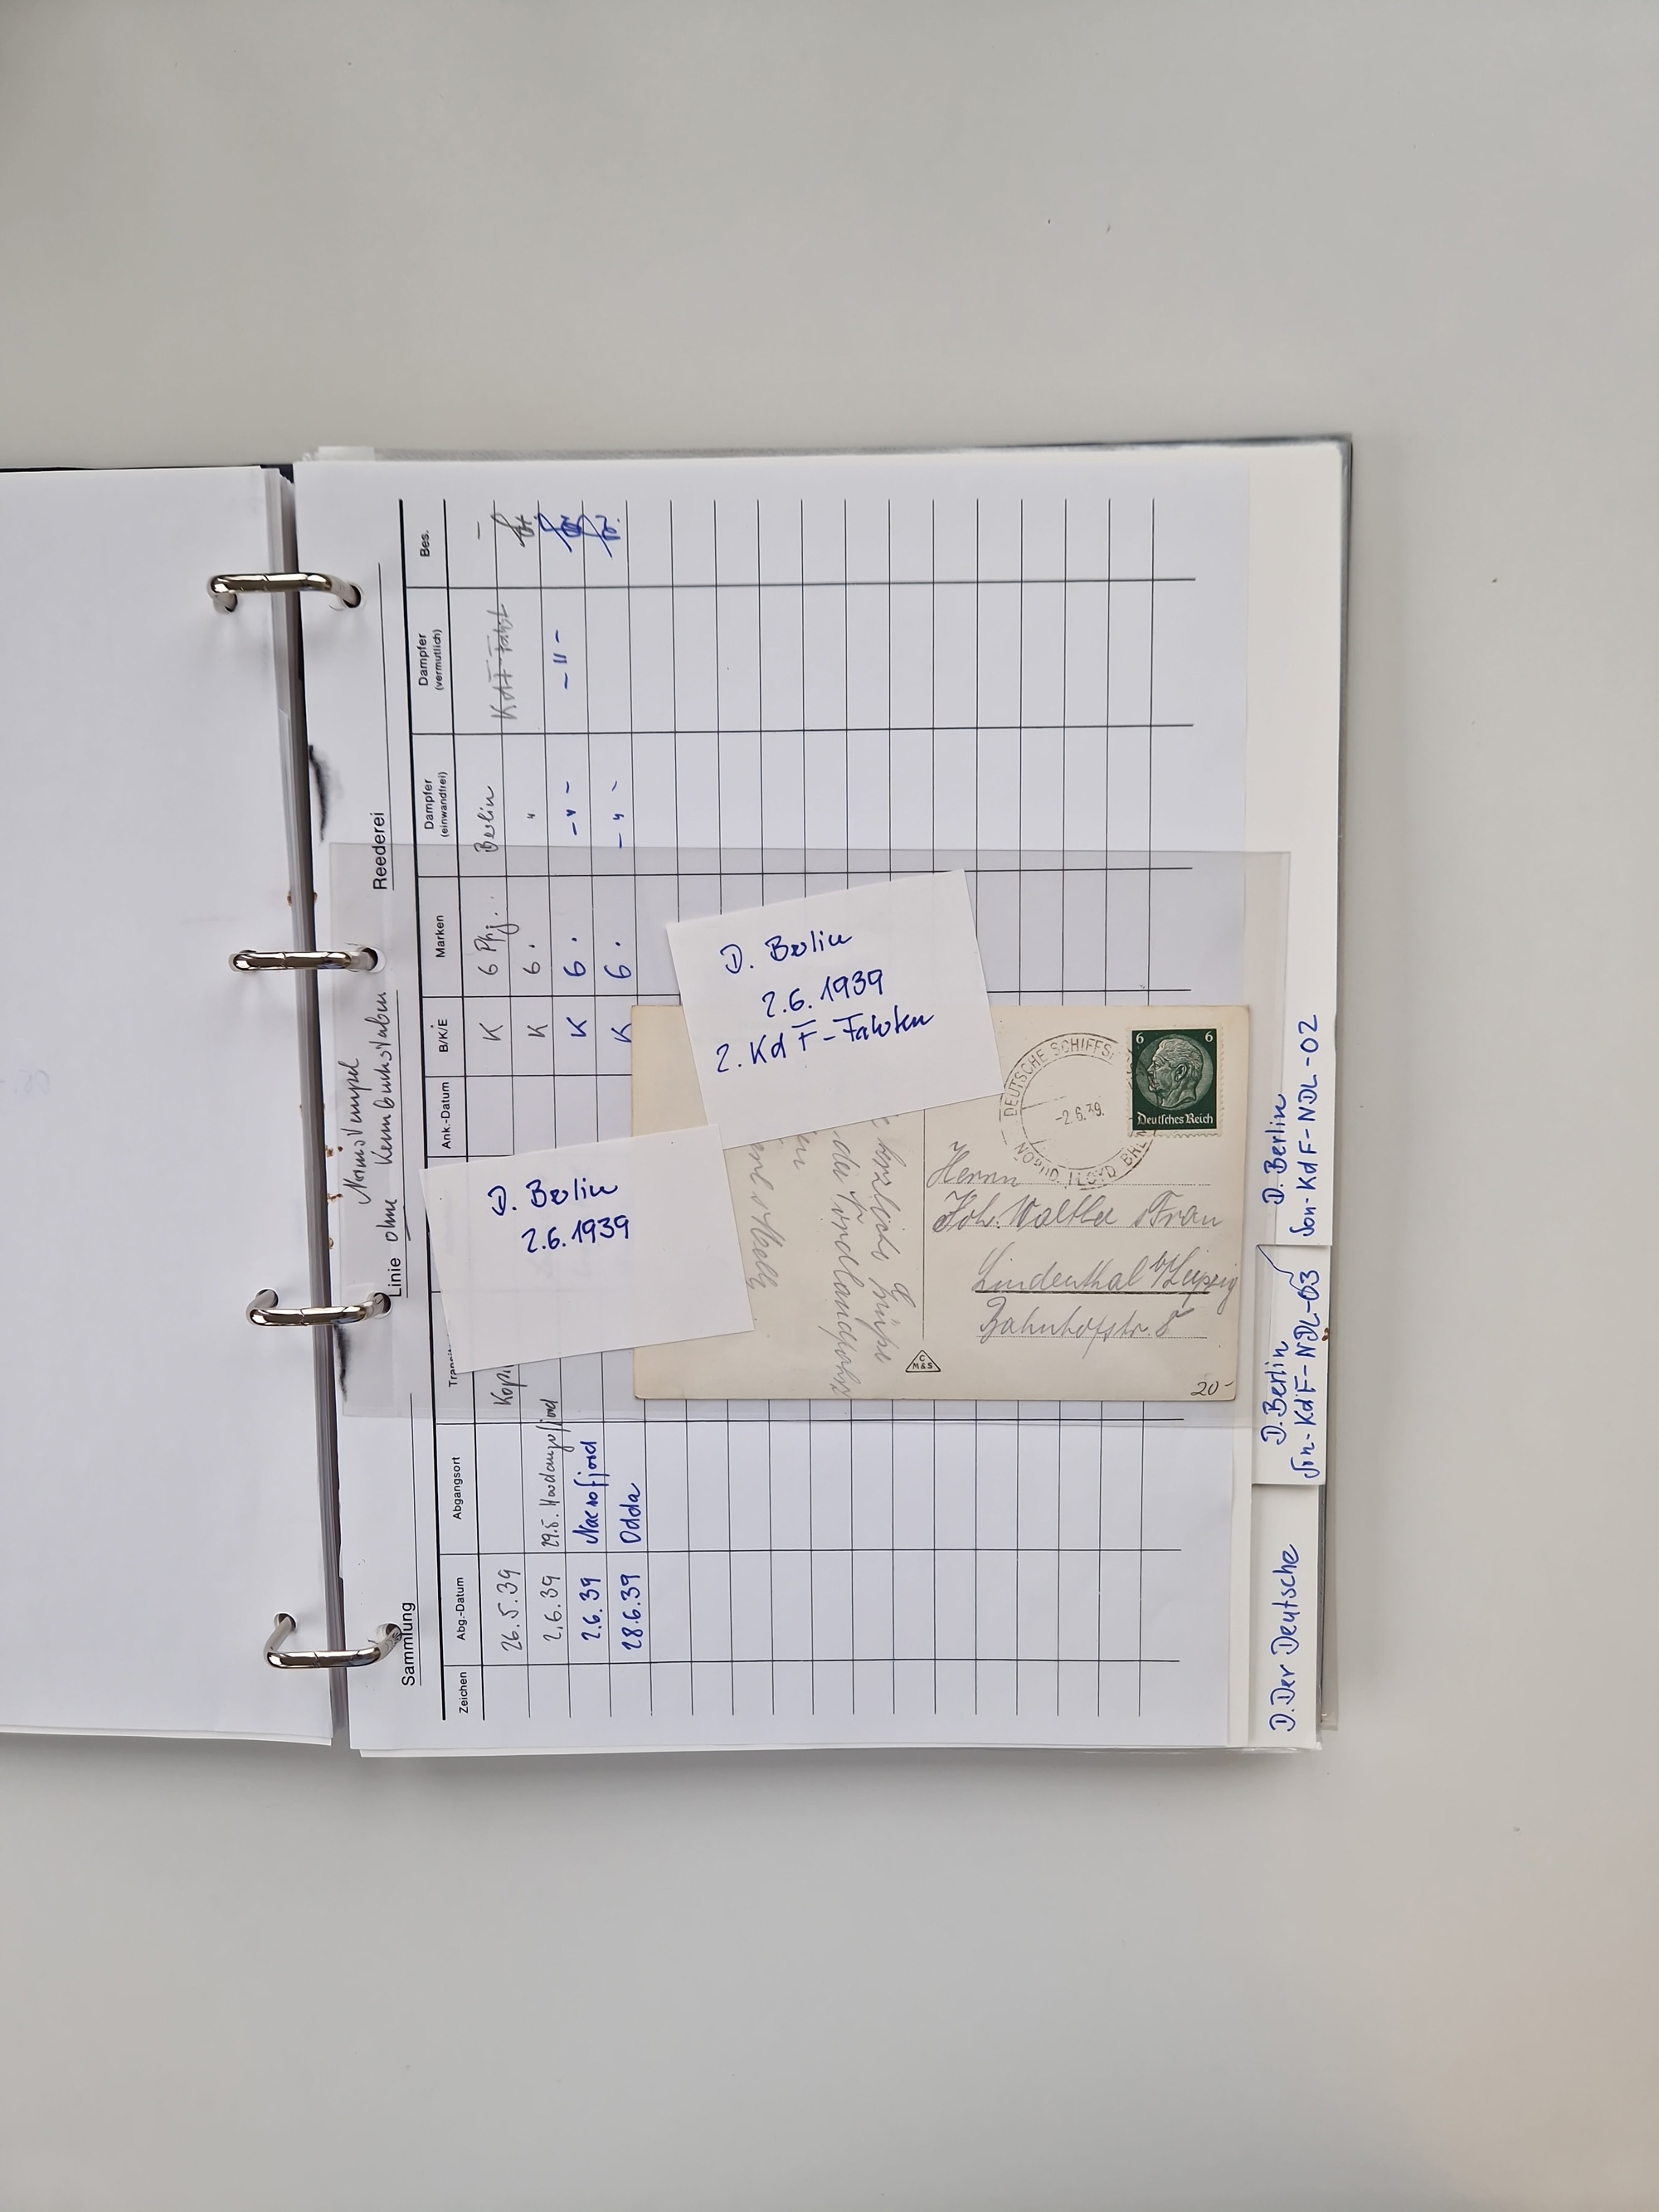 Normstempel
Linie ohne Kennbuchstaben
Sammlung
Reederei
Zeichen Abg.-Datum Abgangsort Ank.-Datum B/K/E Marken Dampfer (einwandfrei) Dampfer (vermutlich) Bes.
26.5.39 K 6 Pfg. Berlin KdF-Fahrt –
2.6.39 29.5. Hardangerfjord K 6 . " 
2.6.39 Naerofjord K 6 . – " – – " –
28.6.39 Odda K 6 . – " –
D. Berlin
2.6.1939
D. Berlin
2.6.1939
2. KdF-Fahrten
herzliche Grüße
der Nordlandfahrt
DEUTSCHE SCHIFFS
-2.6.39.
LLOYD BREM
6 6
Deutsches Reich
Herrn
Joh. Walther u Frau
Lindenthal b/Leipzig
Bahnhofstr. 8
C
M&S
20-
D. Berlin
Son-KdF-NDL-02
D. Berlin
Son-KdF-NDL-03
D. Der Deutsche